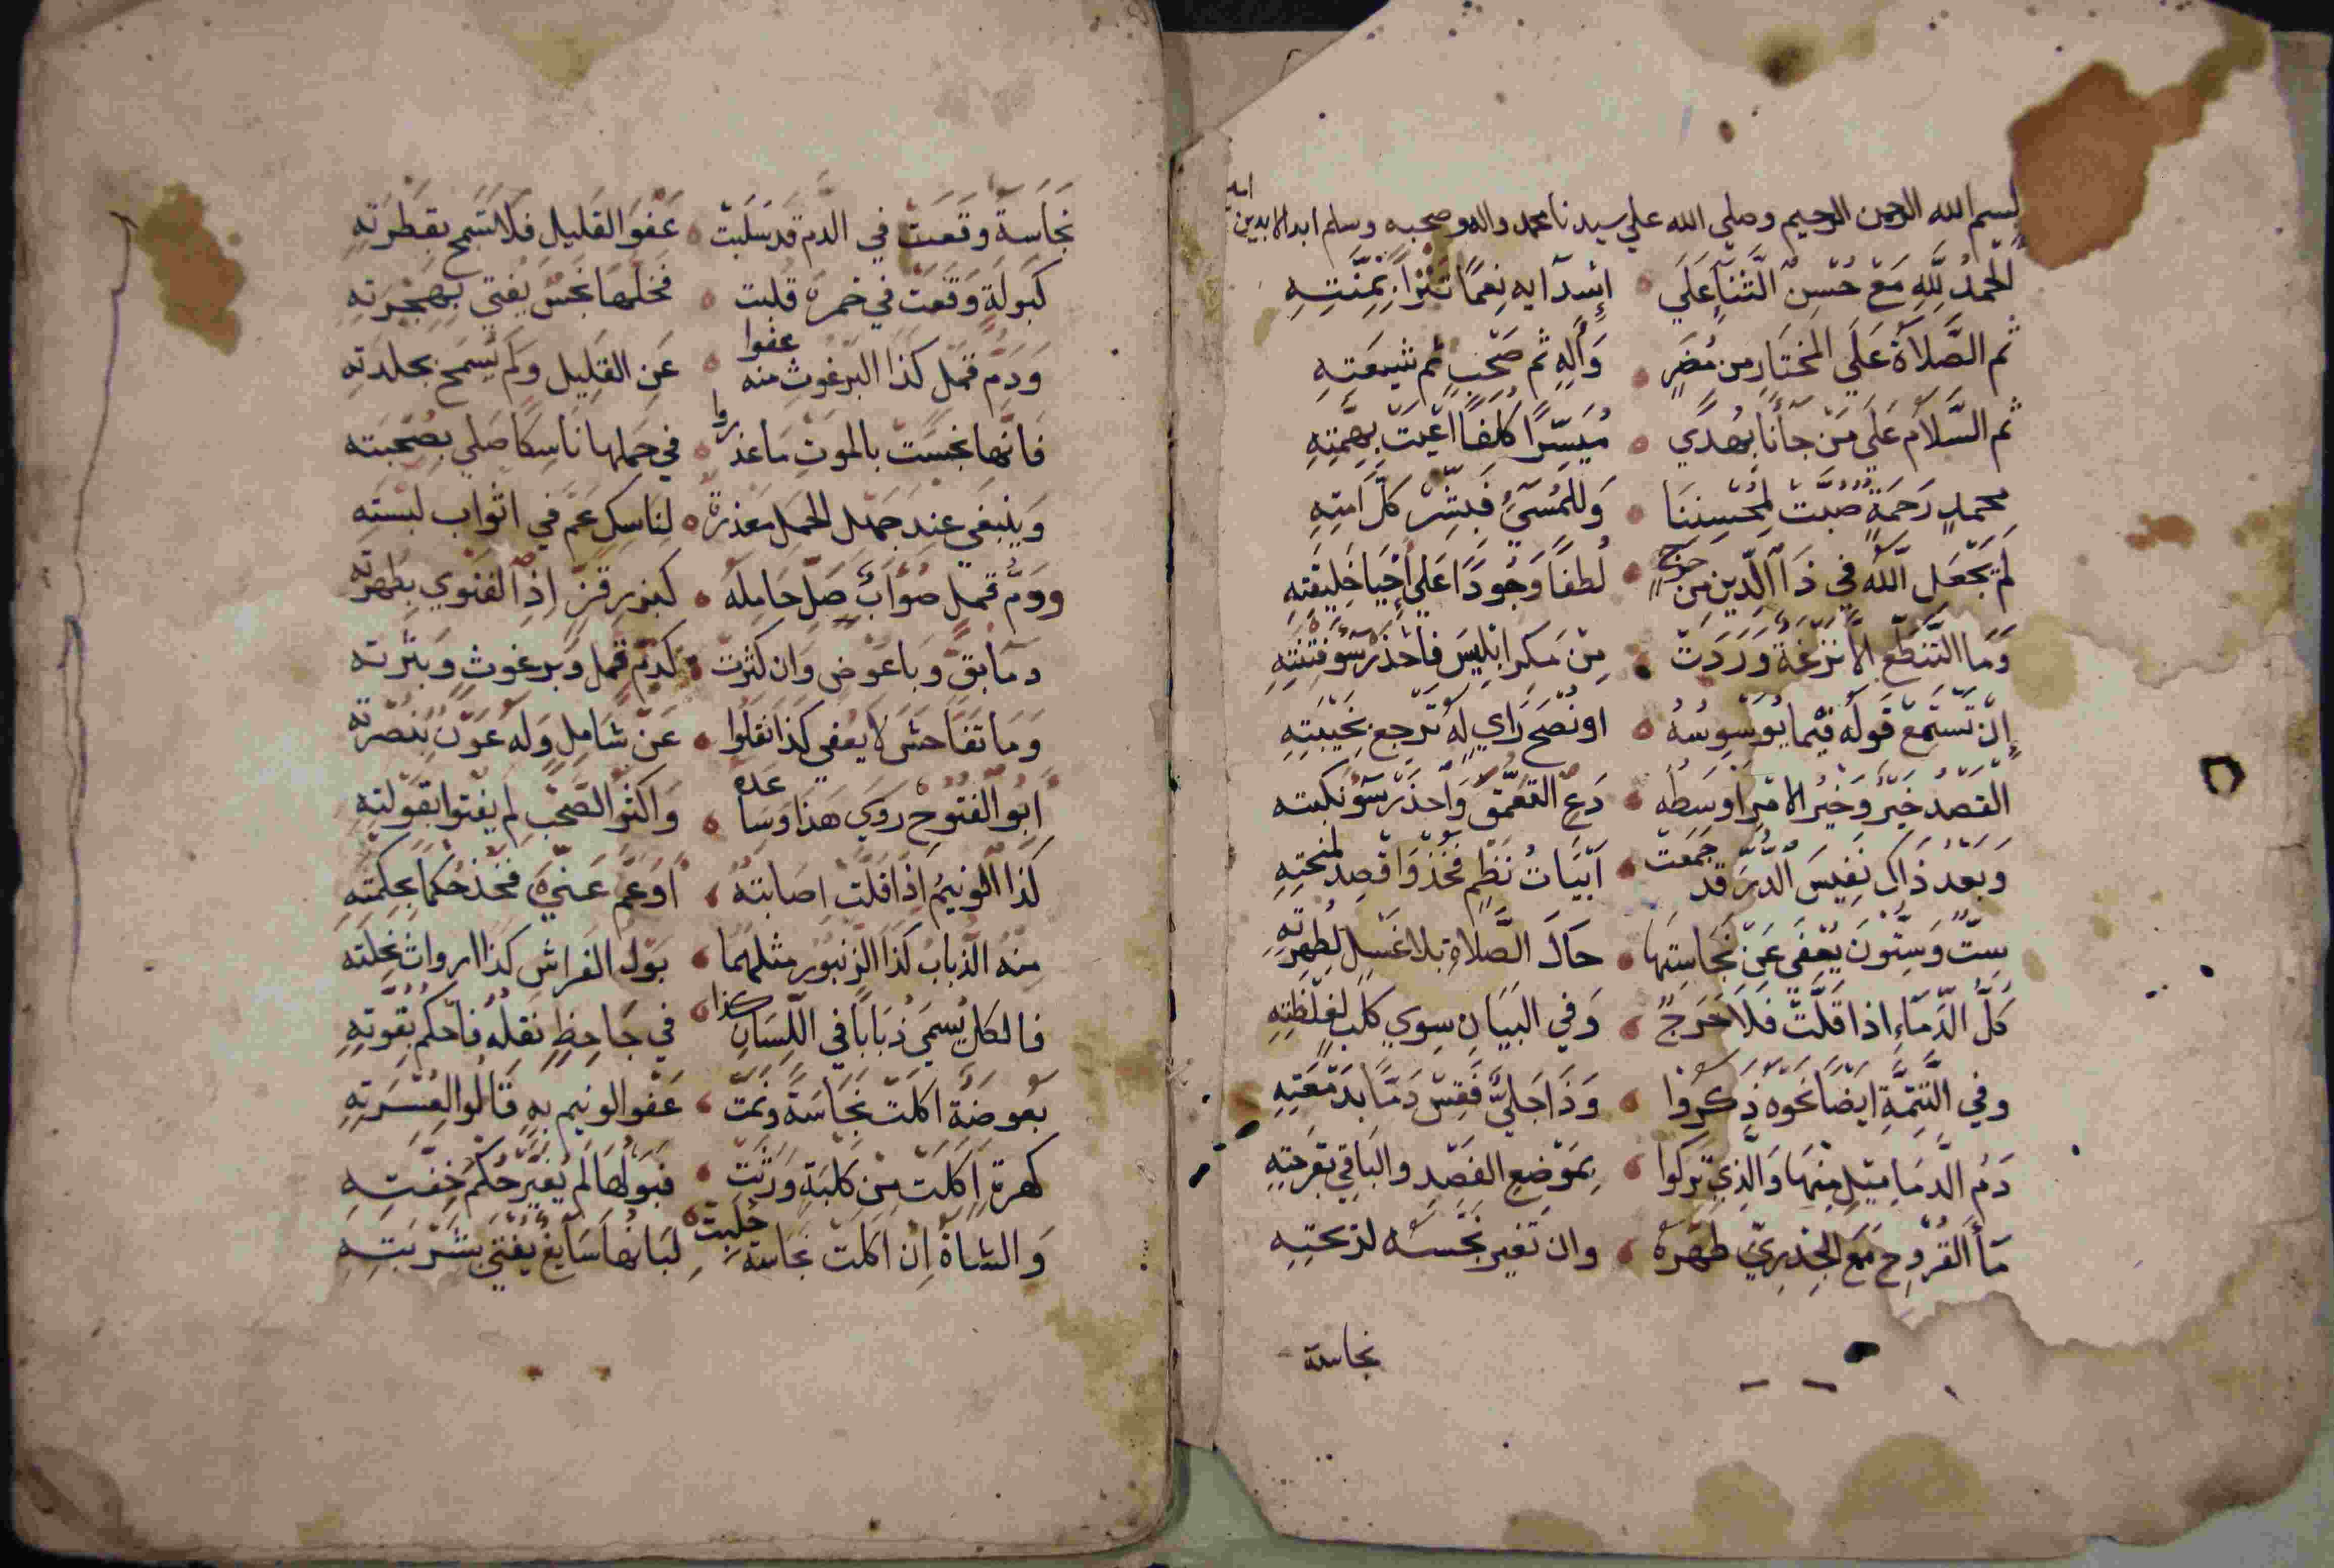 بسم الله الرحمن الرحيم وصلي الله علي سيدنا محمد واله وصحبه وسلم ابد الابدين امين
الحمد لله مع حسن الثناء علي اسدايه نعما تترا بمنته
ثم الصلاة علي المختار من مضر واله ثم صحب ثم شيعته
ثم السلام علي من جانا بهدي ميسرا كلفا اعيت بهمته
محمد رحمة صبت لمحسننا وللمسيء فبشر كل امته
لم يجعل الله في ذا الدين من حرج لطفا وجودا علي احيا خليقته
وما التنطع الا نزغة وردت من مكر ابليس فاحذر سو فتنته
ان تستمع قوله فيما يوسوسه او نصح راي له ترجع بخيبته
القصد خير وخير الامر اوسطه دع التعمق واحذر سو نكبته
وبعد ذاك نفيس الدر قد جمعت ابيات نظم فخذ واقصد لمنحته
ست وستون يعفي عن نجاستها حال الصلاة بلا غسل لطهرته
كل الدماء اذا قلت فلا حرج وفي البيان سوي كلب لغلظته
وفي التتمة ايضا نحوه ذكروا وذا جلي فقس دما بدمعته
دم الدماميل منها والذي تركوا بموضع الفصد والباقي بقرحته
ما القروح مع الجدري طهره وان تغير نجسه لذ نحته
نجاسة
نجاسة وقعت في الدم قد سلبت عفو القليل فلا تسمح بقطرته
كبولة وقعت في خمرة قلبت فخلها نجس يفتي بهجرته
ودم قمل كذا البرغوث منه عفوا عن القليل ولم يسمح بجلدته
فانها نجست بالموت ما عذروا في حملها ناسكا صلي بصحبته
وينبغي عند جهل الحمل معذرة لناسك عم في اثواب لبسته
ودم قمل صواب صل حامله كبزر قز اذ الفتوي بطهرته
دما بق وباعوض وان كثرت كدم قمل وبرغوث وبثرته
وما تفاحش لا يعفي كذا نقلوا عن شامل وله عون بنصرته
ابو الفتوح روي هذا وساعده واكثر الصحب لم يفتوا بقولته
كذا الونيم اذا قلت اصابته او عم عنه فخذ حكما بحكمته
منه الذباب كذا الزنبور مثلهما بول الفراش كذا ارواث نحلته
فالكل يسمي ذبابا في اللسان كذا في جاحظ نقله فاحكم بقوته
بعوضة اكلت نجاسة ونمت عفوا الونيم به قالوا لعسرته
كهرة اكلت من كلبة ورثت فبولها لم يغير حكم خفته
والشاة ان اكلت نجاسة حلبت لبانها سايغ يفتي بشربته